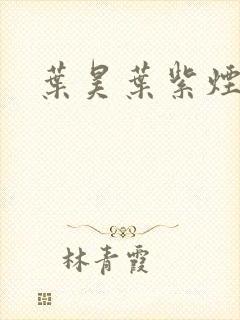 葉昊葉紫煙
林青霞